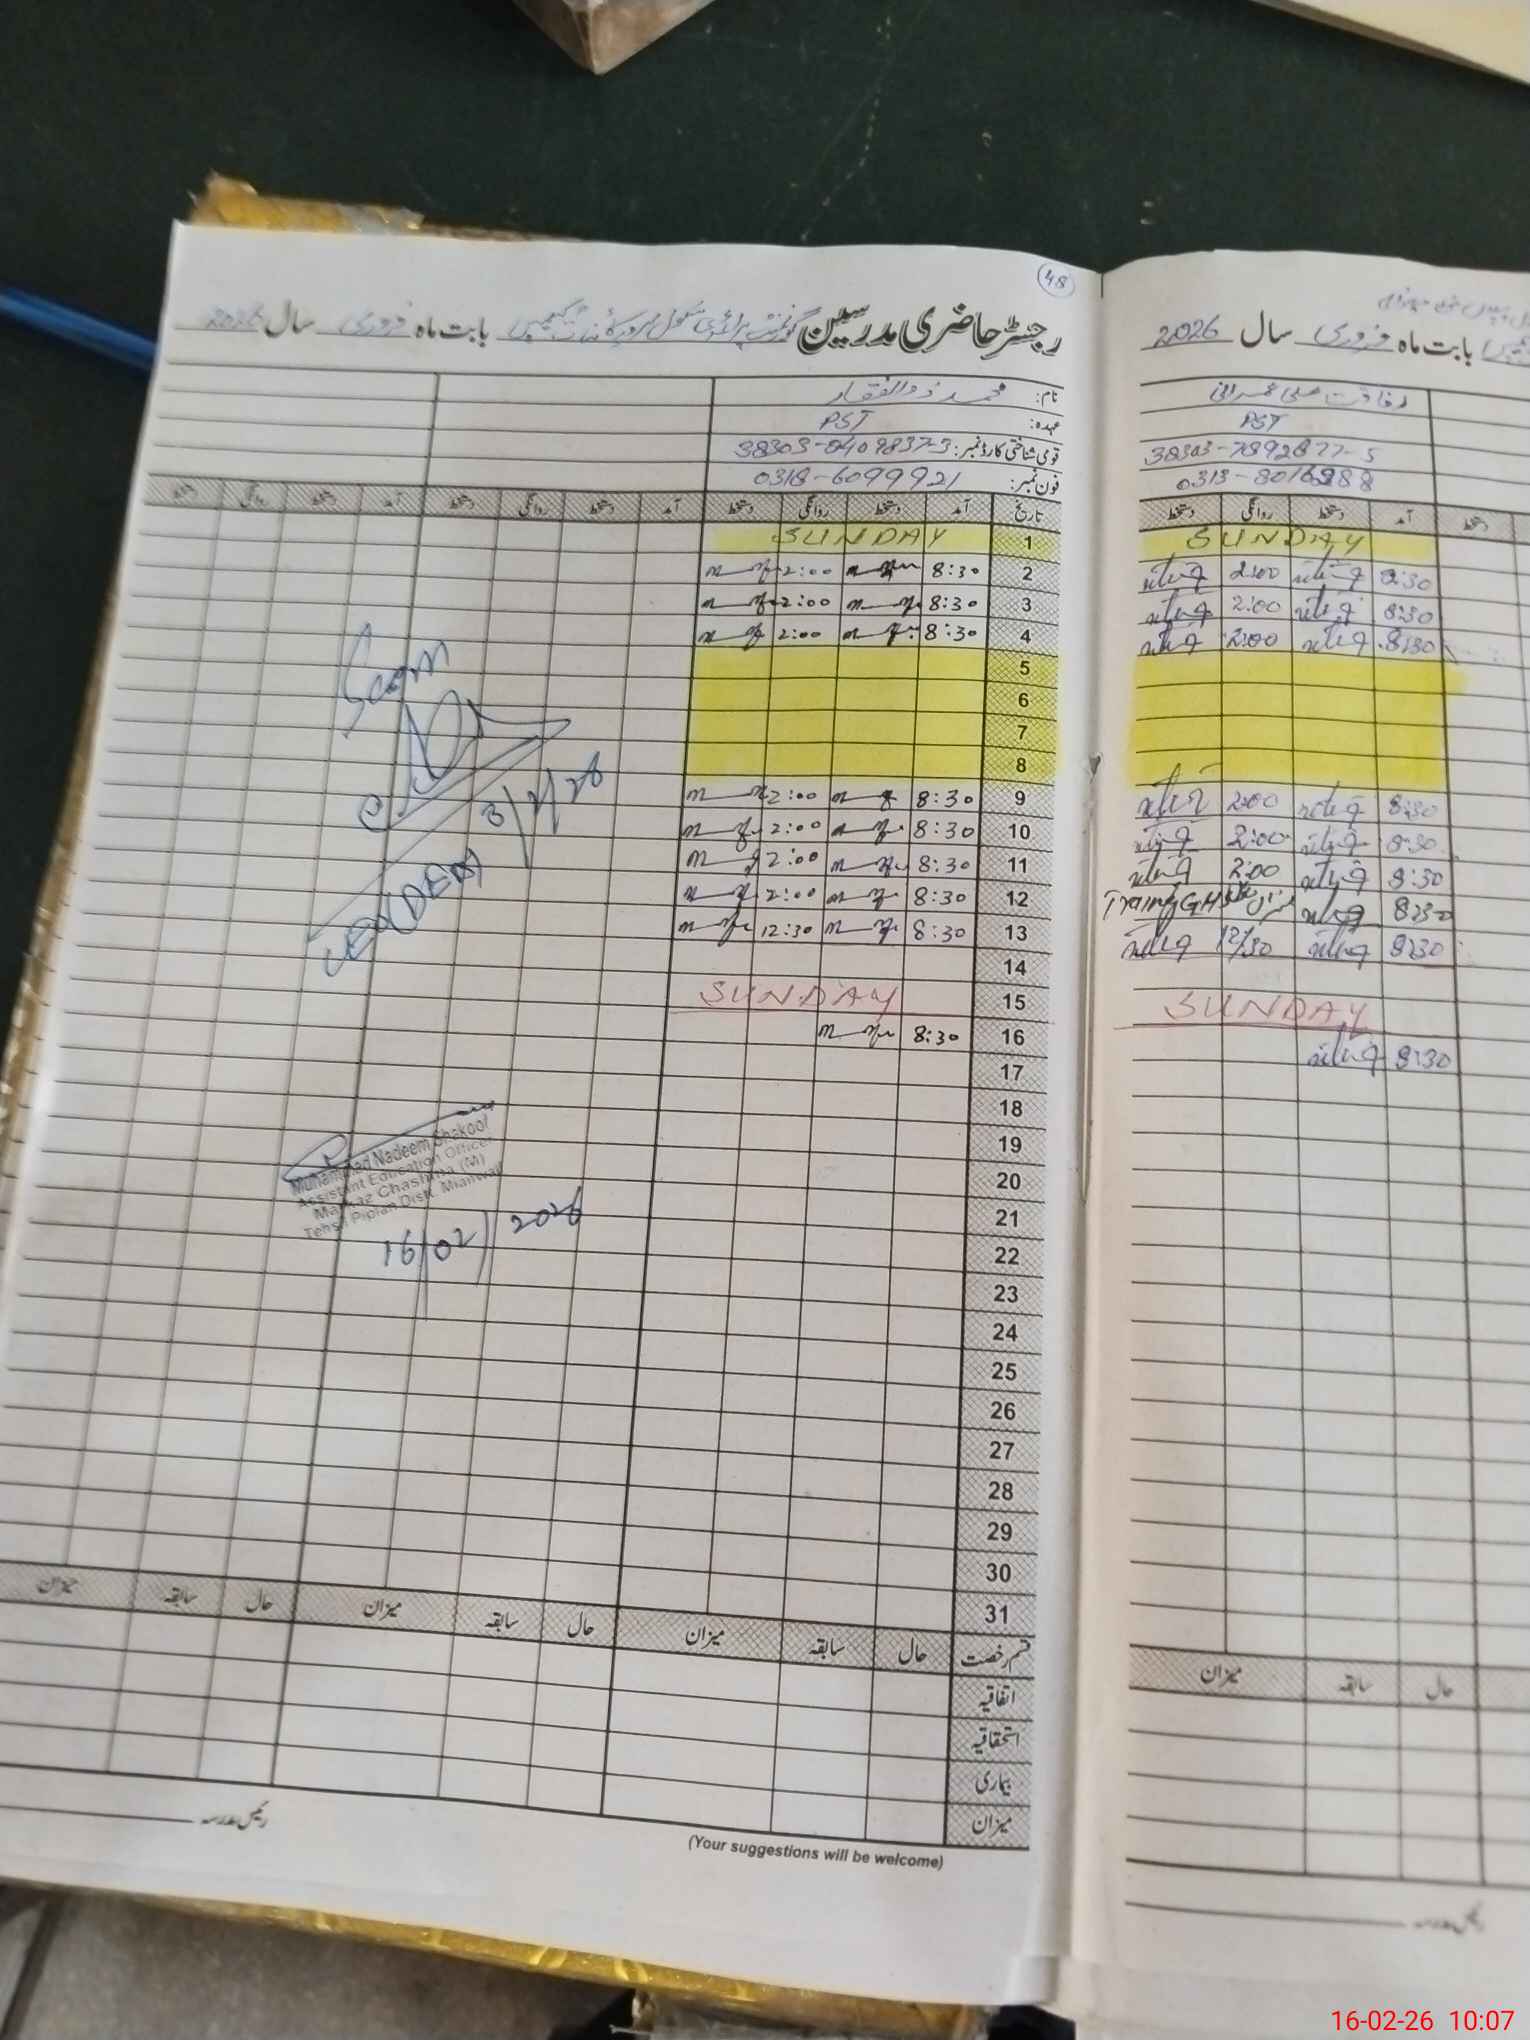 48
رجسٹر حاضری مدرسین گورنمنٹ پرائمری سکول بابت ماہ فروری سال 2026
نام: محمد ذوالفقار
عہدہ: PST
قومی شناختی کارڈ نمبر: 38303-0409837-3
فون نمبر: 0318-6099921
تاریخ آمد دستخط روانگی دستخط آمد دستخط روانگی دستخط آمد دستخط روانگی دستخط
1 SUNDAY
2 8:30 2:00
3 8:30 2:00
4 8:30 2:00
5
6
7
8
9 8:30 2:00
10 8:30 2:00
11 8:30 2:00
12 8:30 2:00
13 8:30 12:30
14
15 SUNDAY
16 8:30
17
18
19
20
21
22
23
24
25
26
27
28
29
30
31
Seen
CEO (DEA)
Muhammad Nadeem Shakoor
Assistant Education Officer
Markaz Chashma (M)
Tehsil Piplan Distt. Mianwali
16/02/2026
قسم رخصت حال سابقہ میزان حال سابقہ میزان حال سابقہ میزان
اتفاقیہ
استحقاقیہ
بیماری
میزان
رئیس مدرسہ
(Your suggestions will be welcome)
بابت ماہ فروری سال 2026
PST
38303-7892877-5
آمد دستخط روانگی دستخط
دستخط
SUNDAY
8:30 2:00
8:30 2:00
8:30 2:00
8:30 2:00
8:30 2:00
8:30 2:00
8:30 Training GHS
8:30 12:30
SUNDAY
8:30
حال سابقہ میزان
رئیس مدرسہ
16-02-26 10:07